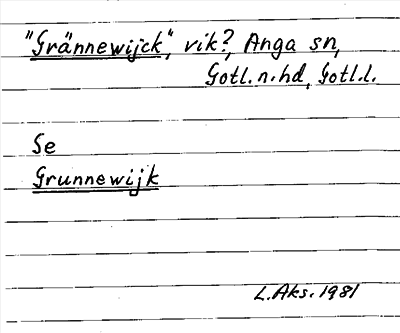 "Grännewijck", vik?, Anga sn,
Gotl. n. hd, Gotl. l.
Se
Grunnewijk
L. Aks. 1981